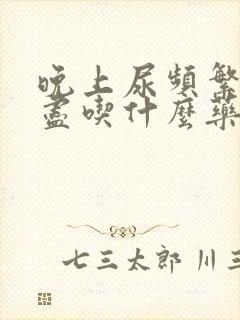 晚上尿頻繁
盡喫什麼藥
七三太郎 川三